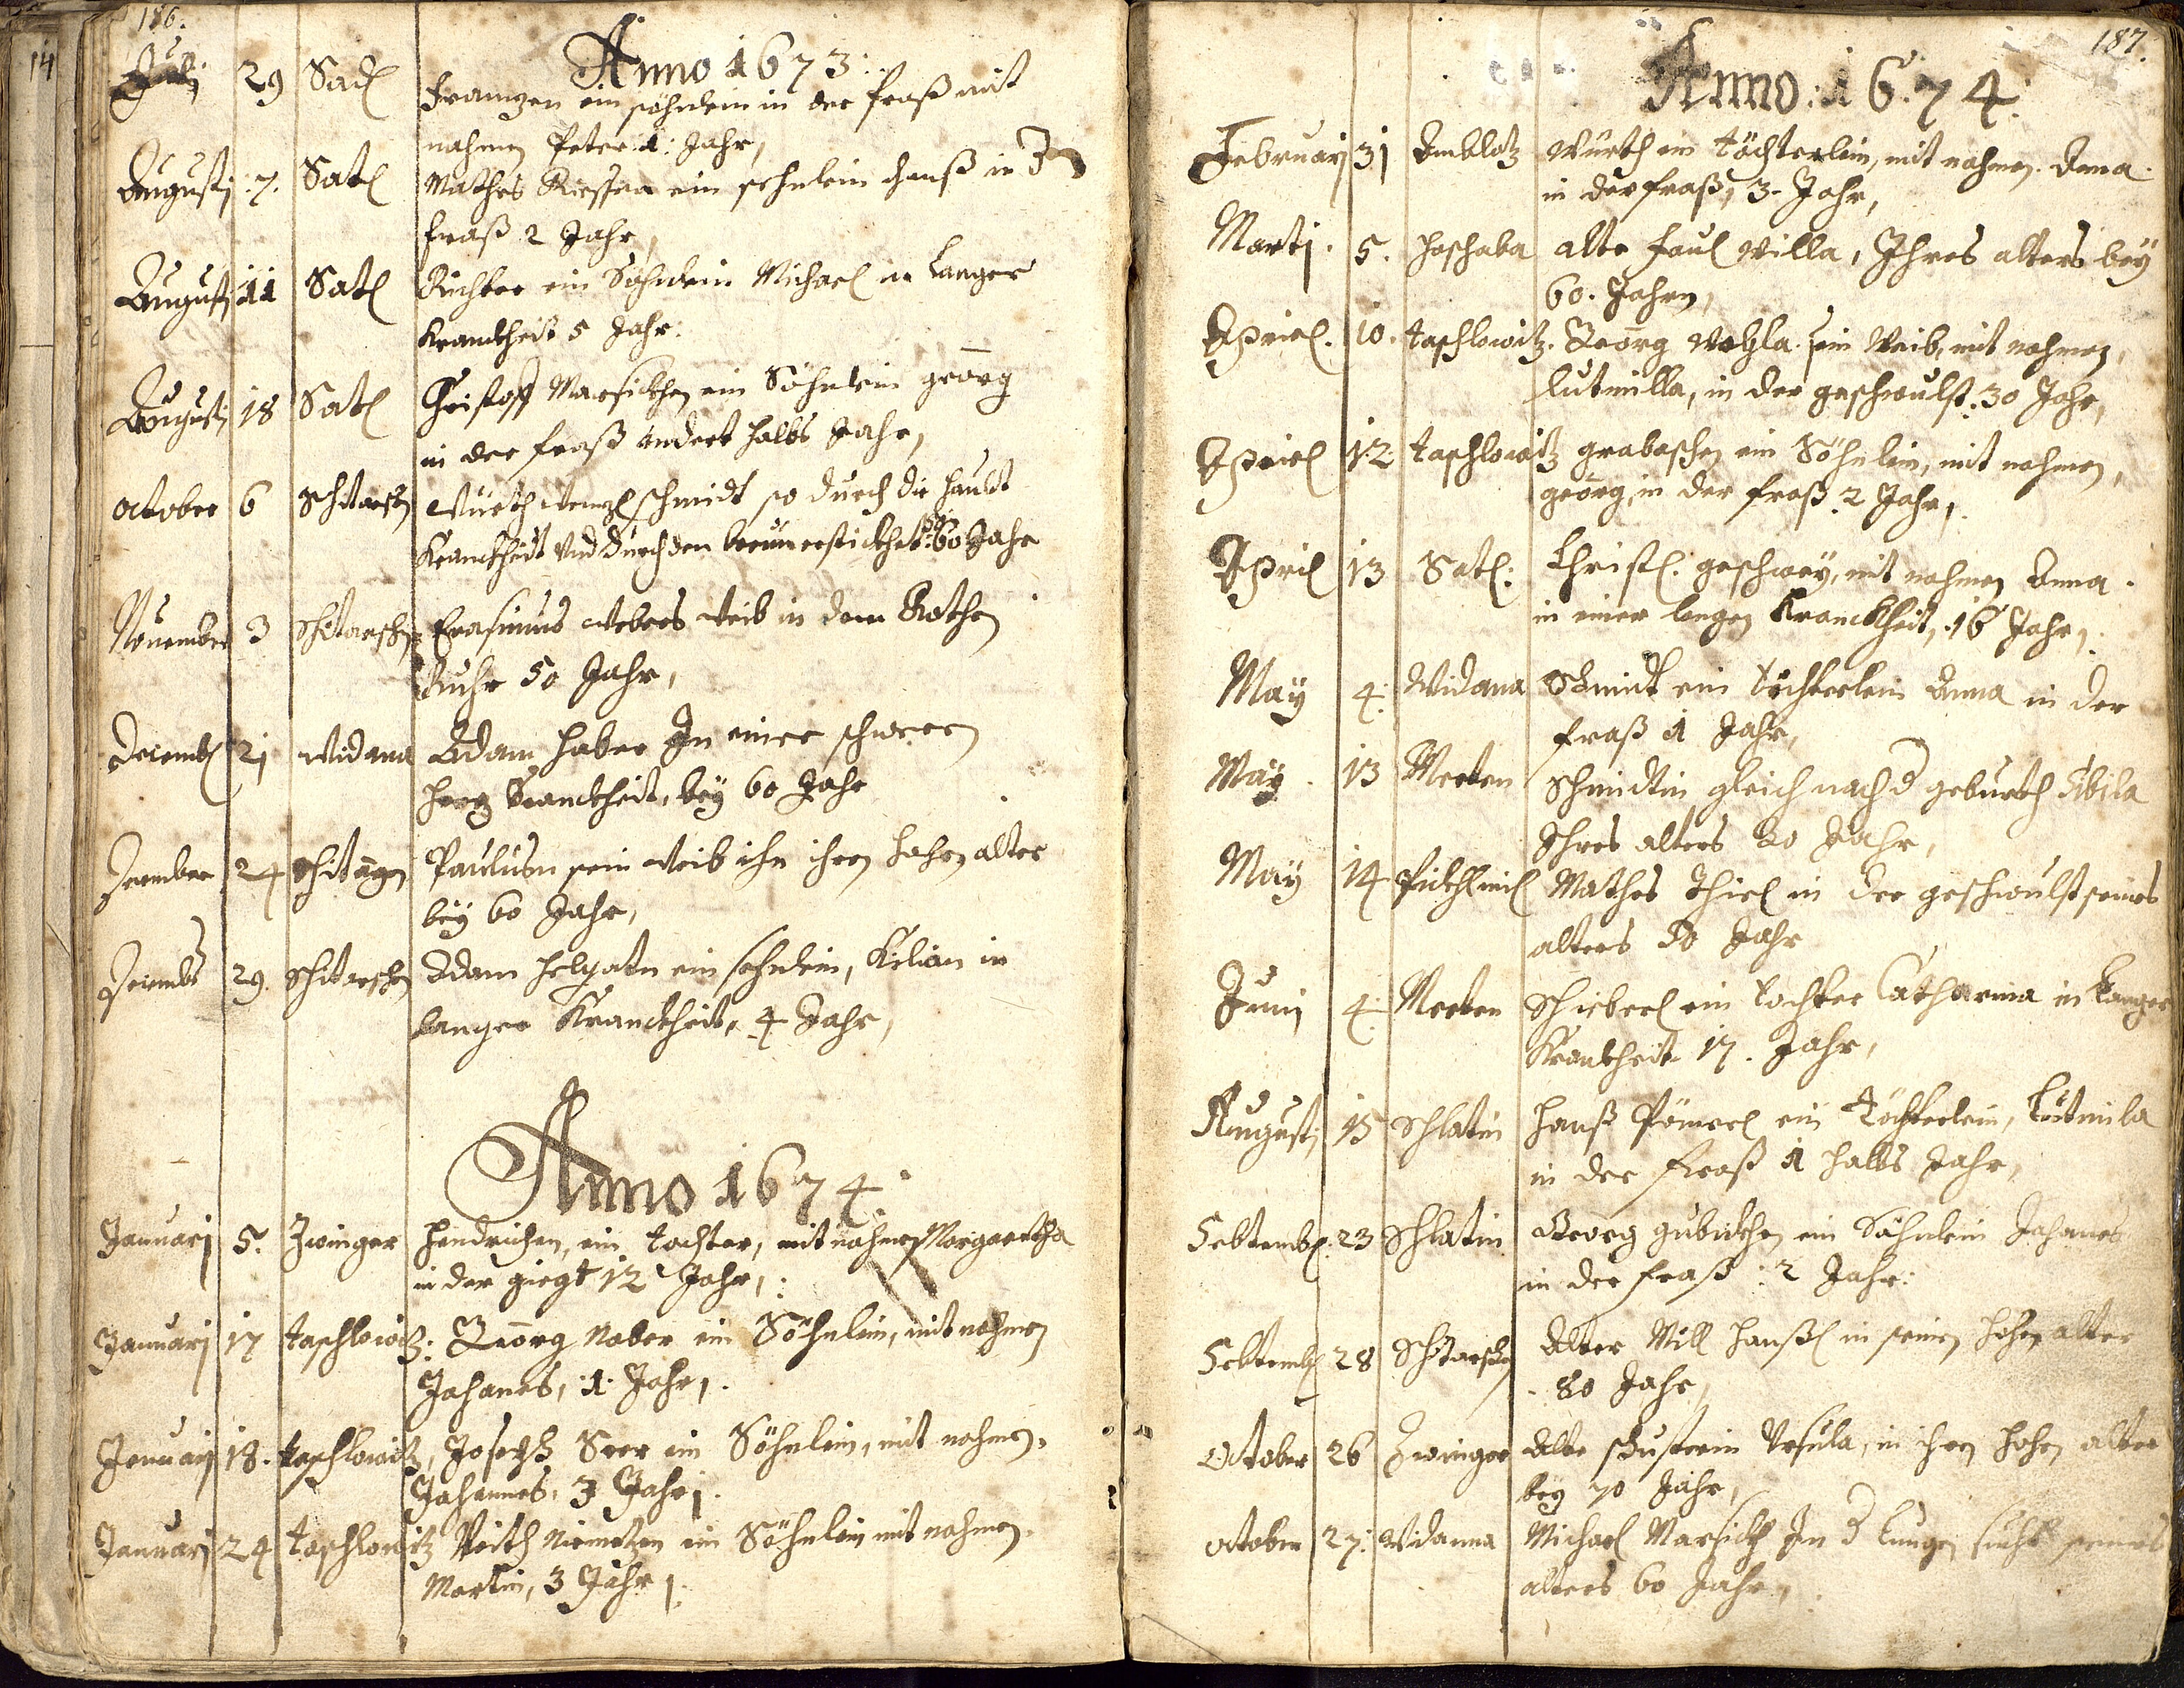 186.
Anno 1673:
Julj 29 Satl Framtzen ein söhnlein in der fraß mit
nahmen Peter 1: Jahr,
Augustj 7. Satl Mathes ein sehnlein Hanß in d
fraß 2 Jahr,
Augustj 11 Satl Richter ein Söhnlein Michael in Langer
Kranckheit 5 Jahr:
Augustj 18 Satl Christoff Marsickhen ein Söhnlein geörg
in der fraß andert halbs Jahr,
October 6 Schitarschen Würth Wentzl Schmidt so durch die haubt
Kranckheit Und durch den 60 Jahr
November 3 Schitarschen Erasimus Webers Weib in dem Rothen
Ruhr 50 Jahr,
Decembl 21 Widana Adam Haber In einer schweren
Hertz Kranckheit, bey 60 Jahr
December 24 Paulusn sein Weib ihn ihren hohen alter
bey 60 Jahr,
Decembr 29. Schitarschen Adam ein sehnlein, Kilian in
langer Kranckheit, 4 Jahr,
Anno 1674:
Januarj 5. Zwinger Hendrichen, ein tochter, mit nahmen Margaretha
in der giegt 12 Jahr,
Januarj 17 taschlowitz: Geörg Naber ein Söhnlein, mit nahmen
Johanes, 1 Jahr,
Januarj 18. taschlowitz, Joseph Seer ein Söhnlein, mit nahmen.
Johannes. 3 Jahr,
Januarj 24 taschlowitz Veith Niemetzen ein Söhnlein mit nahmen.
Martin, 3 Jahr,
187.
Anno: 1674:
Februarj 31 Amblatz Würth ein töchterlein, mit nahmen. Anna.
in der fraß, 3. Jahr,
Martj. 5. Hoschaba alte faul Willa, Ihres alters bey
60. Jahren,
Apriel. 10. taschlowitz. Geörg sein Weib, mit nahmen,
Lutmilla, in der geschwulst. 30 Jahr,
Apriel 12 taschlowitz grabaschen ein Söhnlein, mit nahmen,
geörg, in der fraß. 2 Jahr,
April 13 Satl: Christl. geschwey, mit nahmen Anna.
in einer langen Kranckheit, 16 Jahr,
May 4: Widana Schmidt ein töchterlein Anna in der
fraß 1 Jahr,
May 13 Merten Schmidtin gleich nach d geburth Sibila
Ihres alters 20 Jahr,
May 14 Mathes Thiel in der geschwulst seines
alters 50 Jahr
Junj 4: Merten Schieberl ein tochter Catharina in langer
Kranckheit 17. Jahr,
Augustj 15 Schlatin Hanß Pömerl ein Töchterlein, Lutmila
in der fraß 1 halbs Jahr,
Sebtembl. 23 Schlatin Georg gubickhen ein Söhnlein Johanes
in der fraß: 2 Jahr:
Sebtembl 28 Schitarschen Alter Mill Hanßl in seinen hohen alter
. 80 Jahr,
October 26 Zwinger Alte schusterin Ursula, in ihren hohen alter
bey 70 Jahr,
October 27: Widanna Michael Marsickh In d Lungen sucht seines
alters 60 Jahr,
14